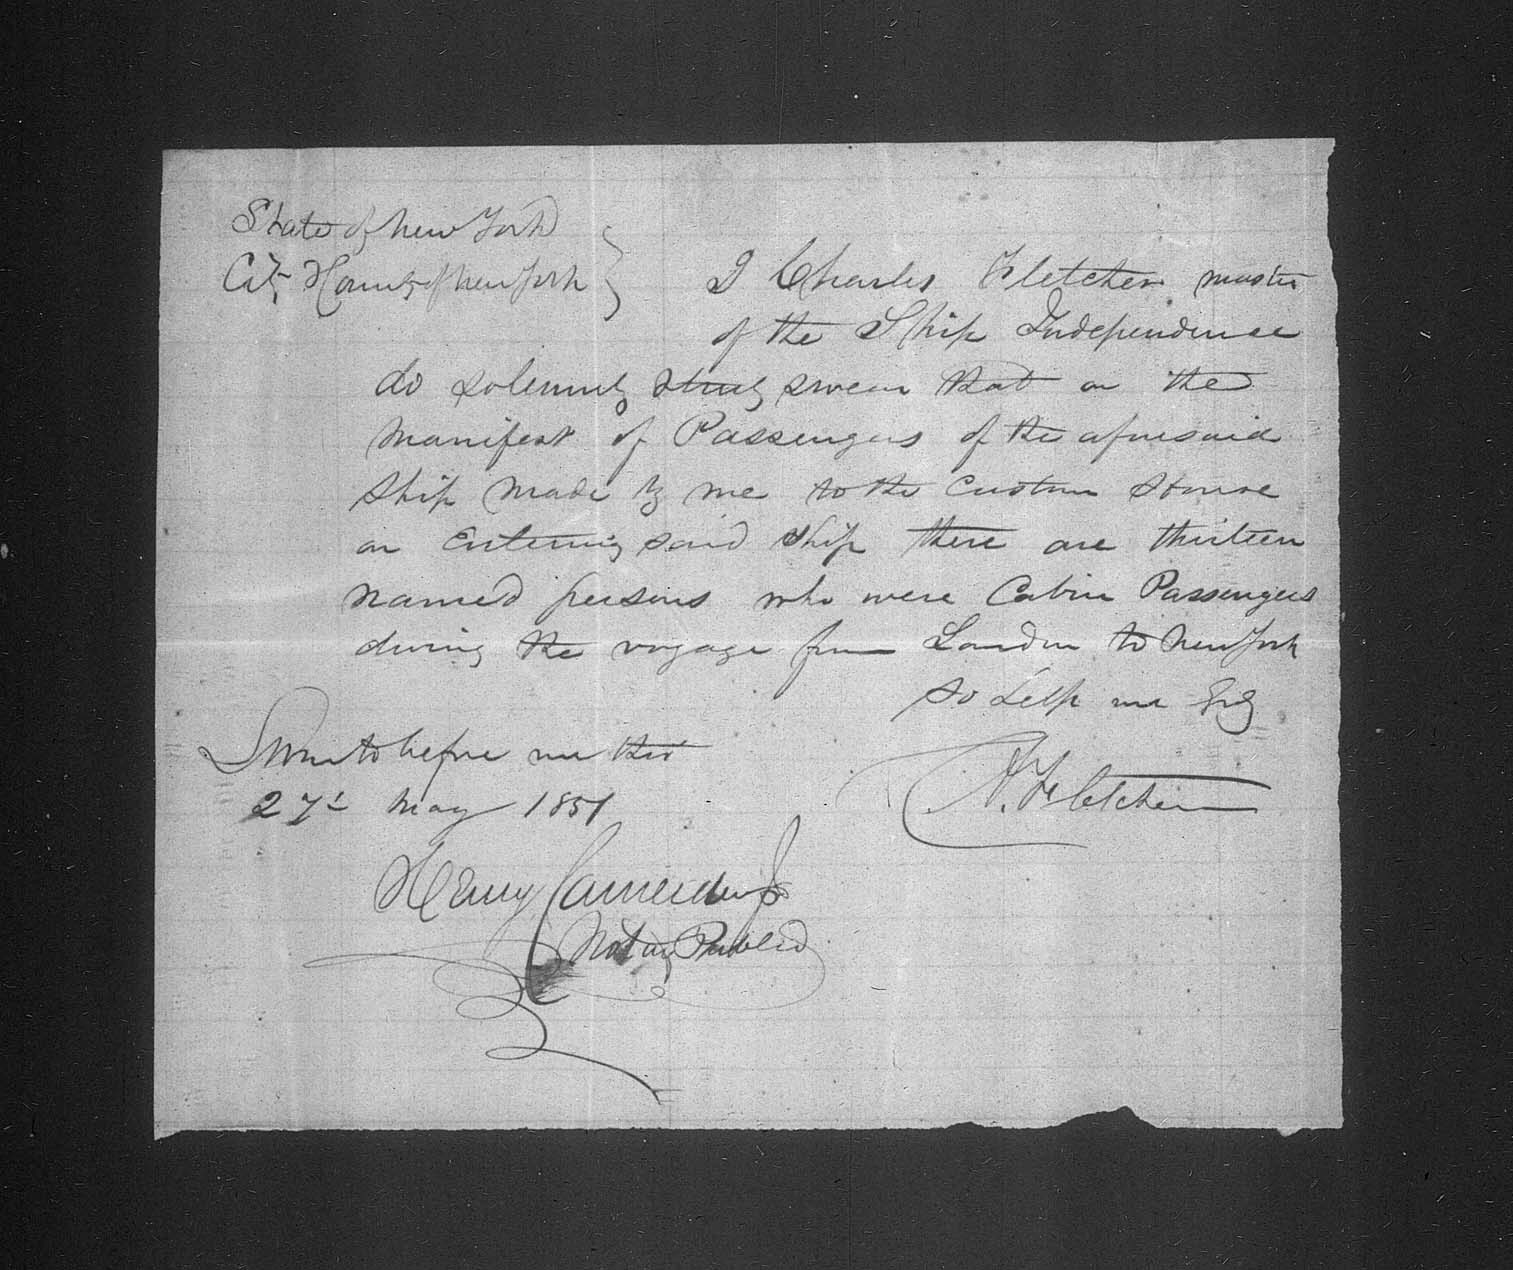 State of New York
City & County of New York
I Charles Fletcher master
of the Ship Independence
do solemnly & truly swear that on the
Manifest of Passengers of the aforesaid
Ship made by me to the Custom House
on Entering said Ship there are thirteen
named persons who were Cabin Passengers
during the voyage from London to New York
so help me God
Sworn to before me this
27th May 1851
C. Fletcher
Henry
Notary Public